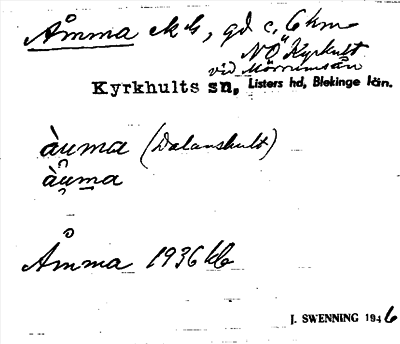 Åmma ek bl, gd c. 6 km
NÖ Kyrkult
vid Mörrumsån
Kyrkhults sn, Listers hd, Blekinge län.
àuma (Dalanshult)
àu̯ma
Åmma 1936 kb
J. SWENNING 1946